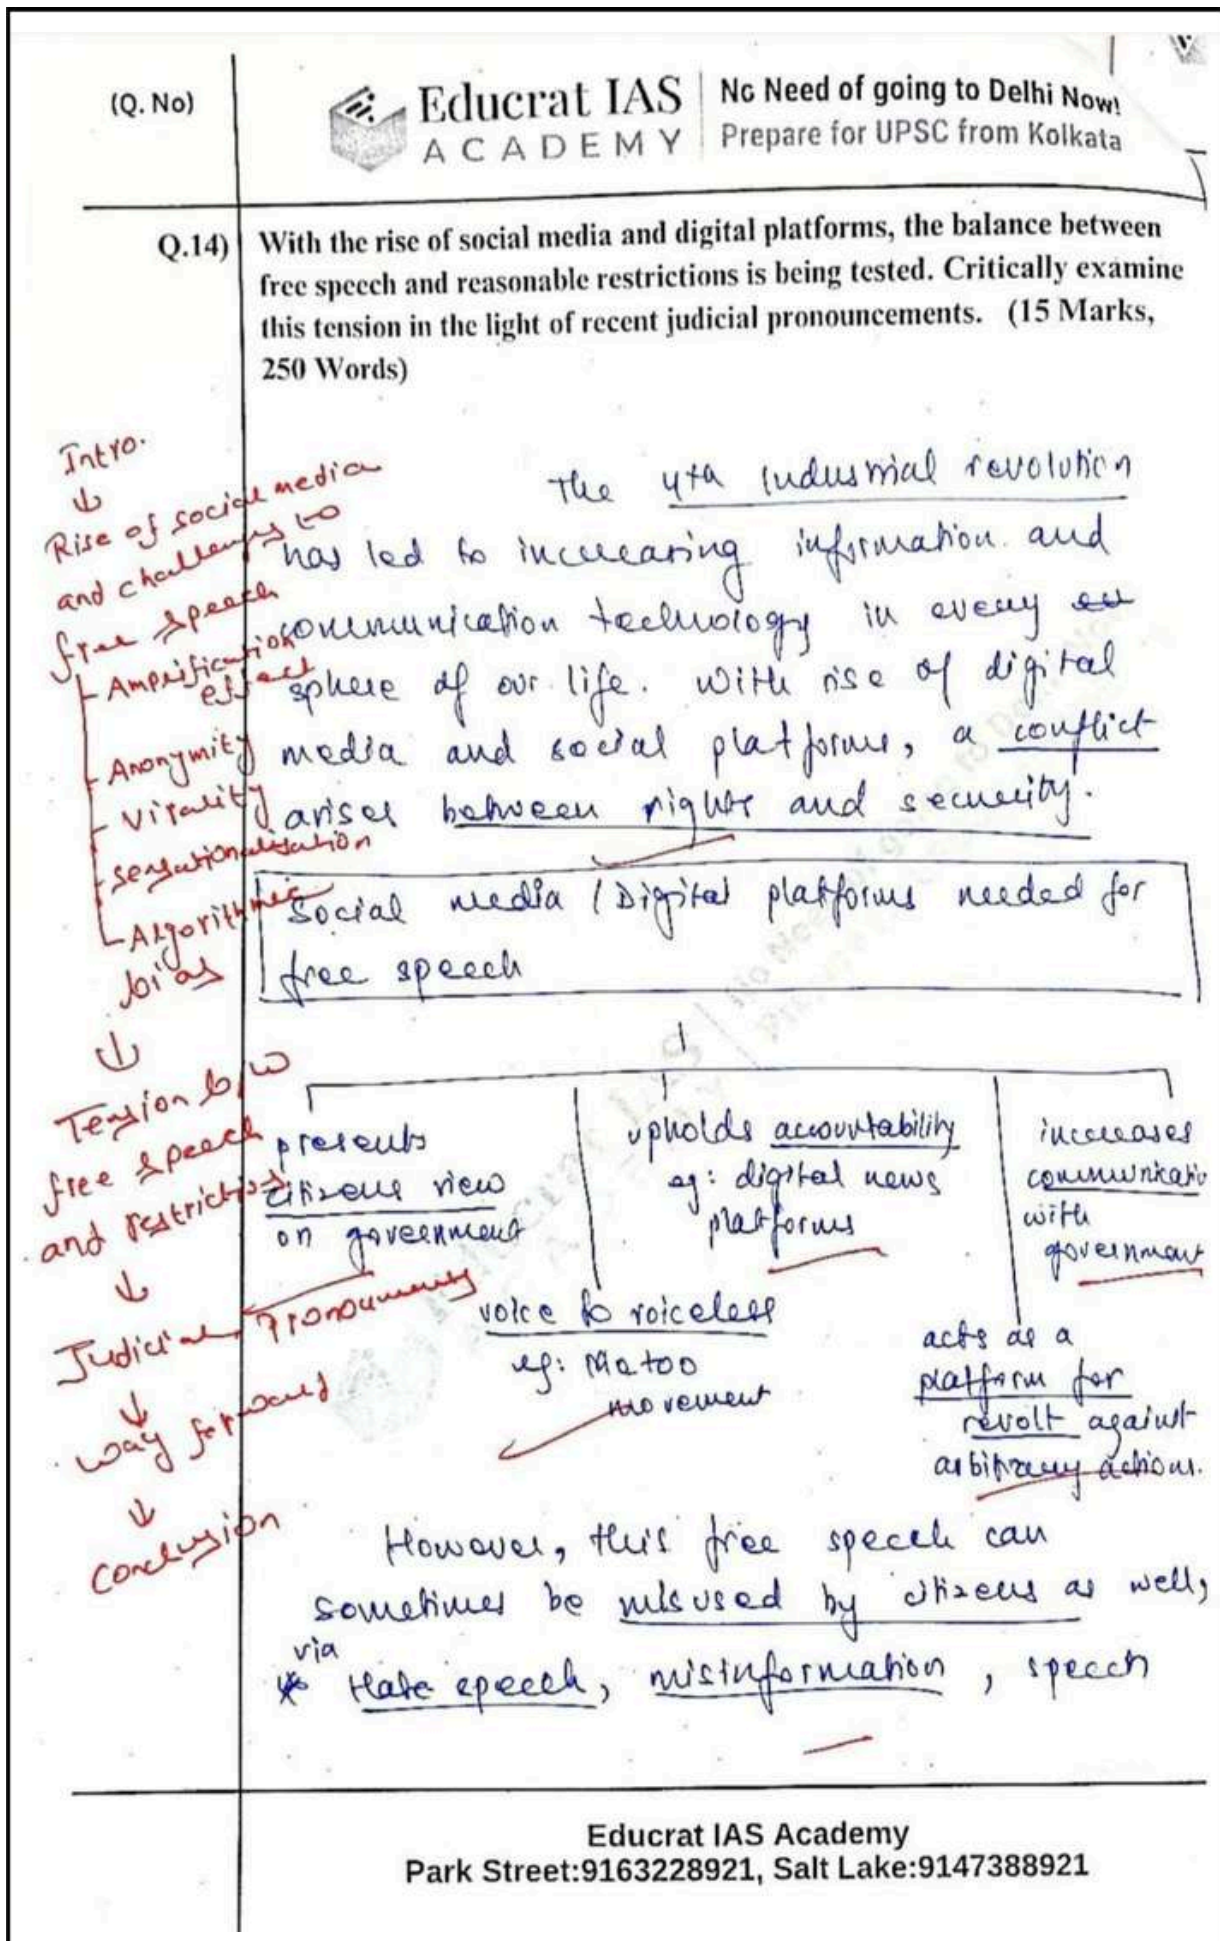 (Q. No)
Educrat IAS
ACADEMY
No Need of going to Delhi Now!
Prepare for UPSC from Kolkata
Q.14)
With the rise of social media and digital platforms, the balance between
free speech and reasonable restrictions is being tested. Critically examine
this tension in the light of recent judicial pronouncements. (15 Marks,
250 Words)
Intro.
↓
Rise of social media
and challenges to
free speech
- Amplification
effect
- Anonymity
- Virality
- sensationalisation
- Algorithmic
bias
↓
Tension b/w
free speech
and restrictions
↓
Judicial Pronouncements
↓
way forward
↓
conclusion
The 4th Industrial revolution
has led to increasing information and
communication technology in every
sphere of our life. With rise of digital
media and social platforms, a conflict
arises between rights and security.
Social media / Digital platforms needed for
free speech
presents
citizens view
on government
voice to voiceless
eg: Metoo
movement
upholds accountability
eg: digital news
platforms
acts as a
platform for
revolt against
arbitrary actions.
increases
communicatio
with
government
However, this free speech can
sometimes be misused by citizens as well,
via
Hate speech, misinformation, speech
Educrat IAS Academy
Park Street:9163228921, Salt Lake:9147388921